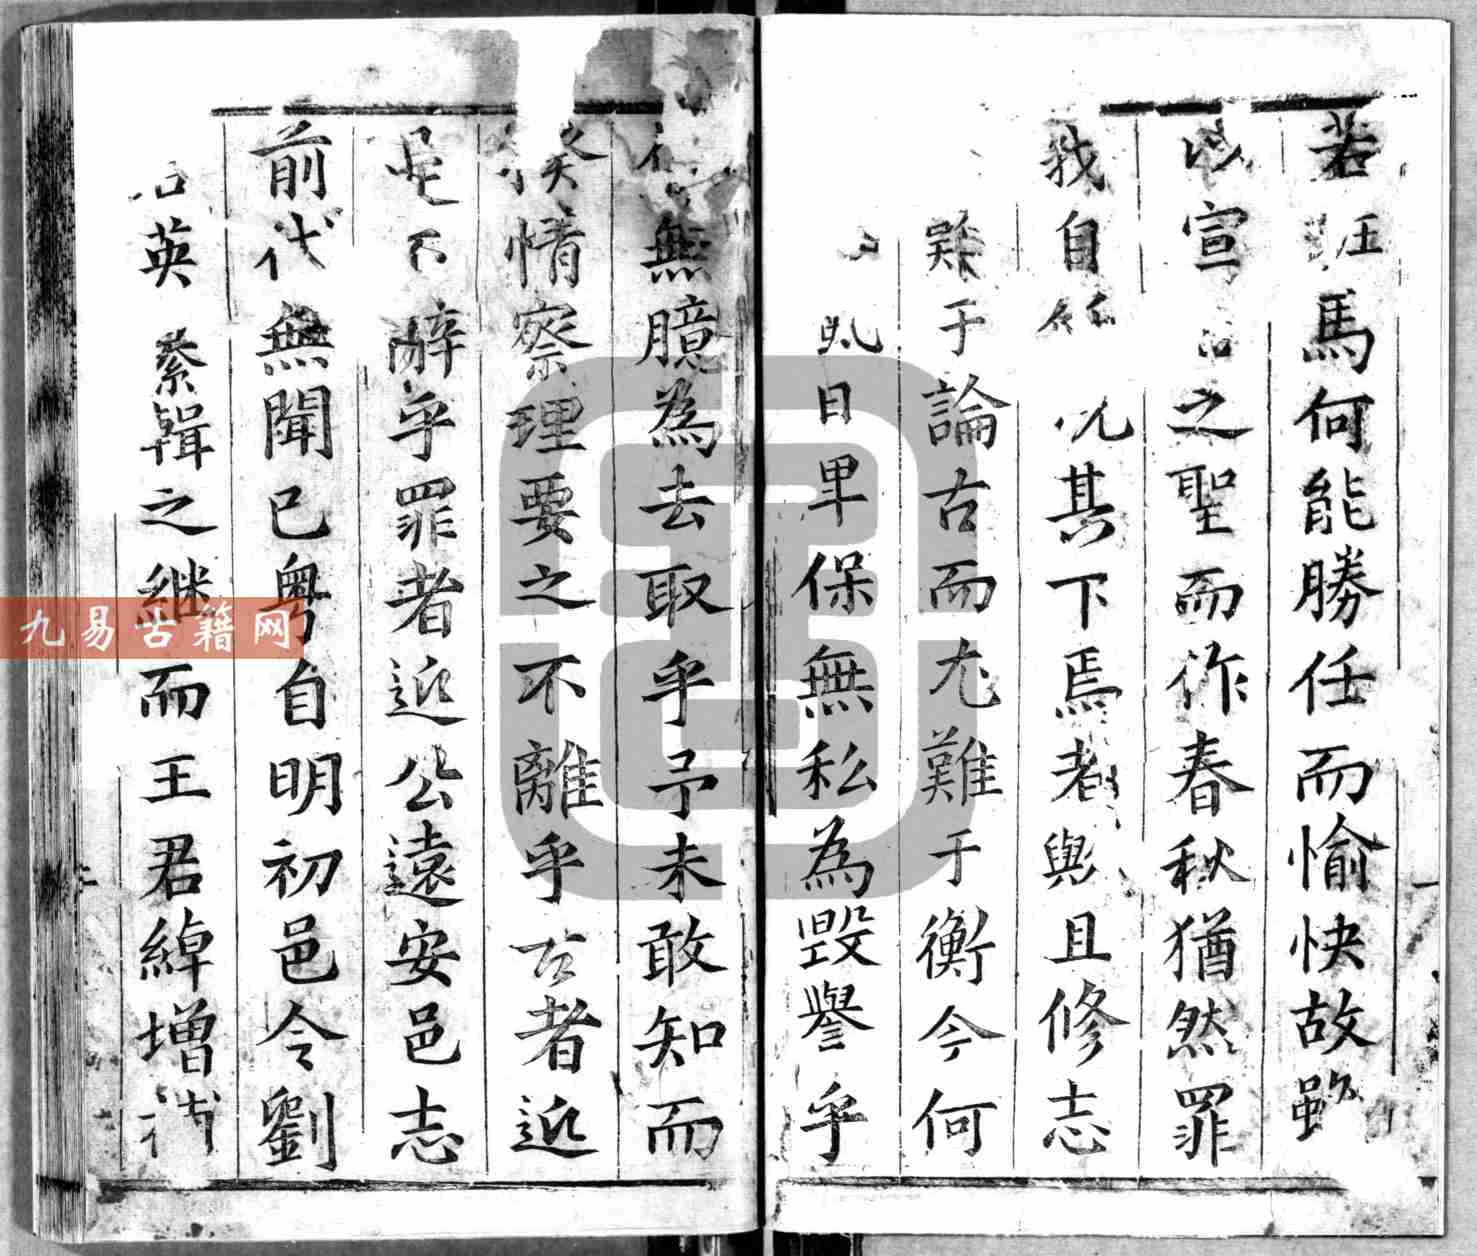 若狂馬何能勝任而愉快故雖
以宣之聖而作春秋猶然罪
我自況其下焉者與且修志
難于論古而尤難于衡今何
以耳目卑保無私為毀譽乎
無臆為去取乎予未敢知而
揆情察理要之不離乎公者近
是不辭乎罪者近公遠安邑志
前代無聞已粤自明初邑令劉
英纂輯之継而王君綽增
九易古籍网